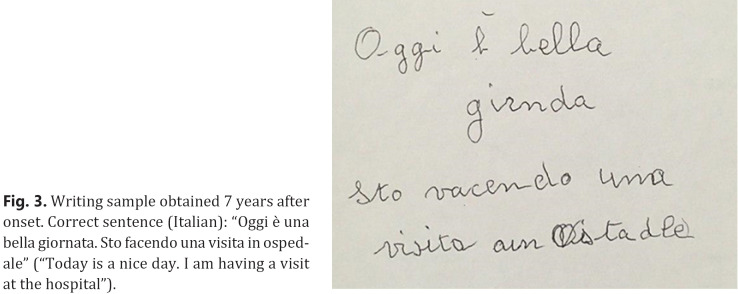 Oggi è bella
girnda
Sto vacendo una
visita ain Ostadle
Fig. 3. Writing sample obtained 7 years after
onset. Correct sentence (Italian): “Oggi è una
bella giornata. Sto facendo una visita in osped-
ale” (“Today is a nice day. I am having a visit
at the hospital”).